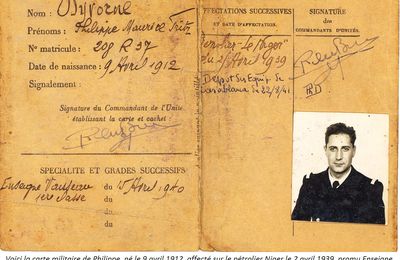 Nom : Divorne
Prénoms : Philippe Maurice Fritz
N° matricule : 209 R 37
Date de naissance : 9 Avril 1912
Signalement :
Signature du Commandant de l'Unité
établissant la carte et cachet :
SPÉCIALITÉ ET GRADES SUCCESSIFS
Enseigne Vaisseau du 15 Avril 1940
1ère classe du
du
AFFECTATIONS SUCCESSIVES
ET DATE D'AFFECTATION.
"Pétrolier-Le Niger"
du 2 Avril 1939
Dépôt des Equip. de
Casablanca le 22/8/41
SIGNATURE
des
COMMANDANTS D'UNITÉS.
Voici la carte militaire de Philippe, né le 9 avril 1912, affecté sur le pétrolier Niger le 2 avril 1939, promu Enseigne